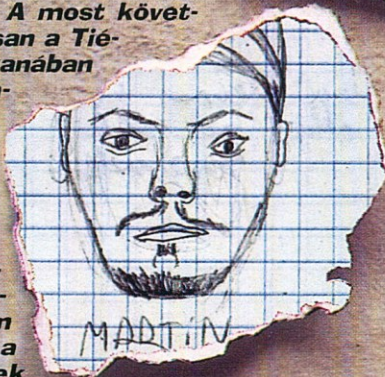 A most követ-
san a Tié-
anában
MARTiN
a
ek